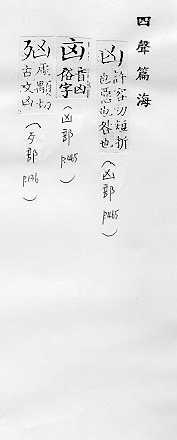 四聲篇海
凶 許容切短折
也惡也咎也
(凶部 p.465)
㐫 音凶
俗字
(凶部 p.465)
虛顒切
古文凶
(歹部 p.136)